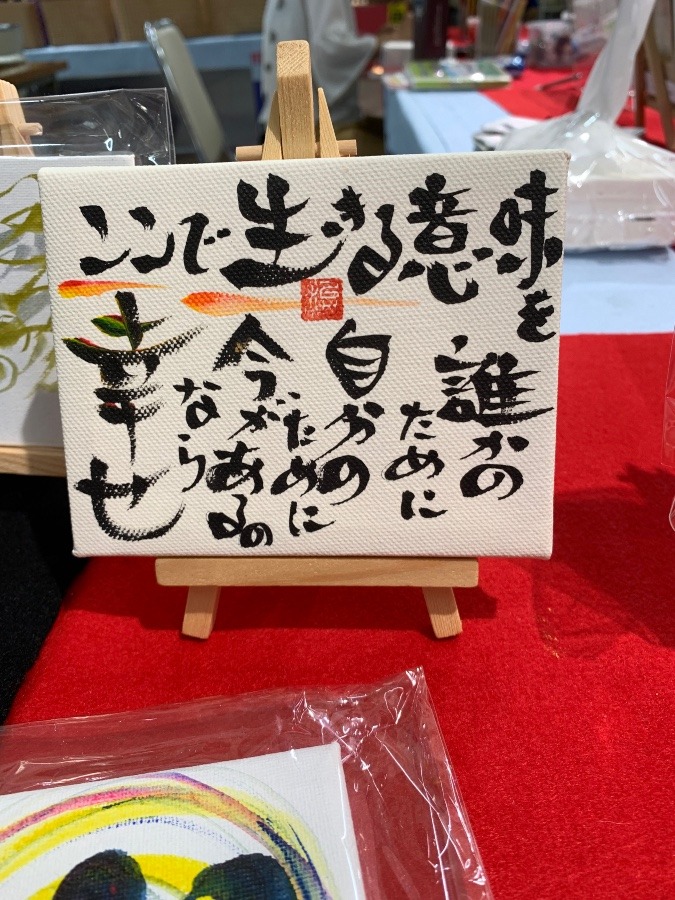 ここで生きる意味を
誰かの
ために
自分の
ために
今があるの
なら
幸せ